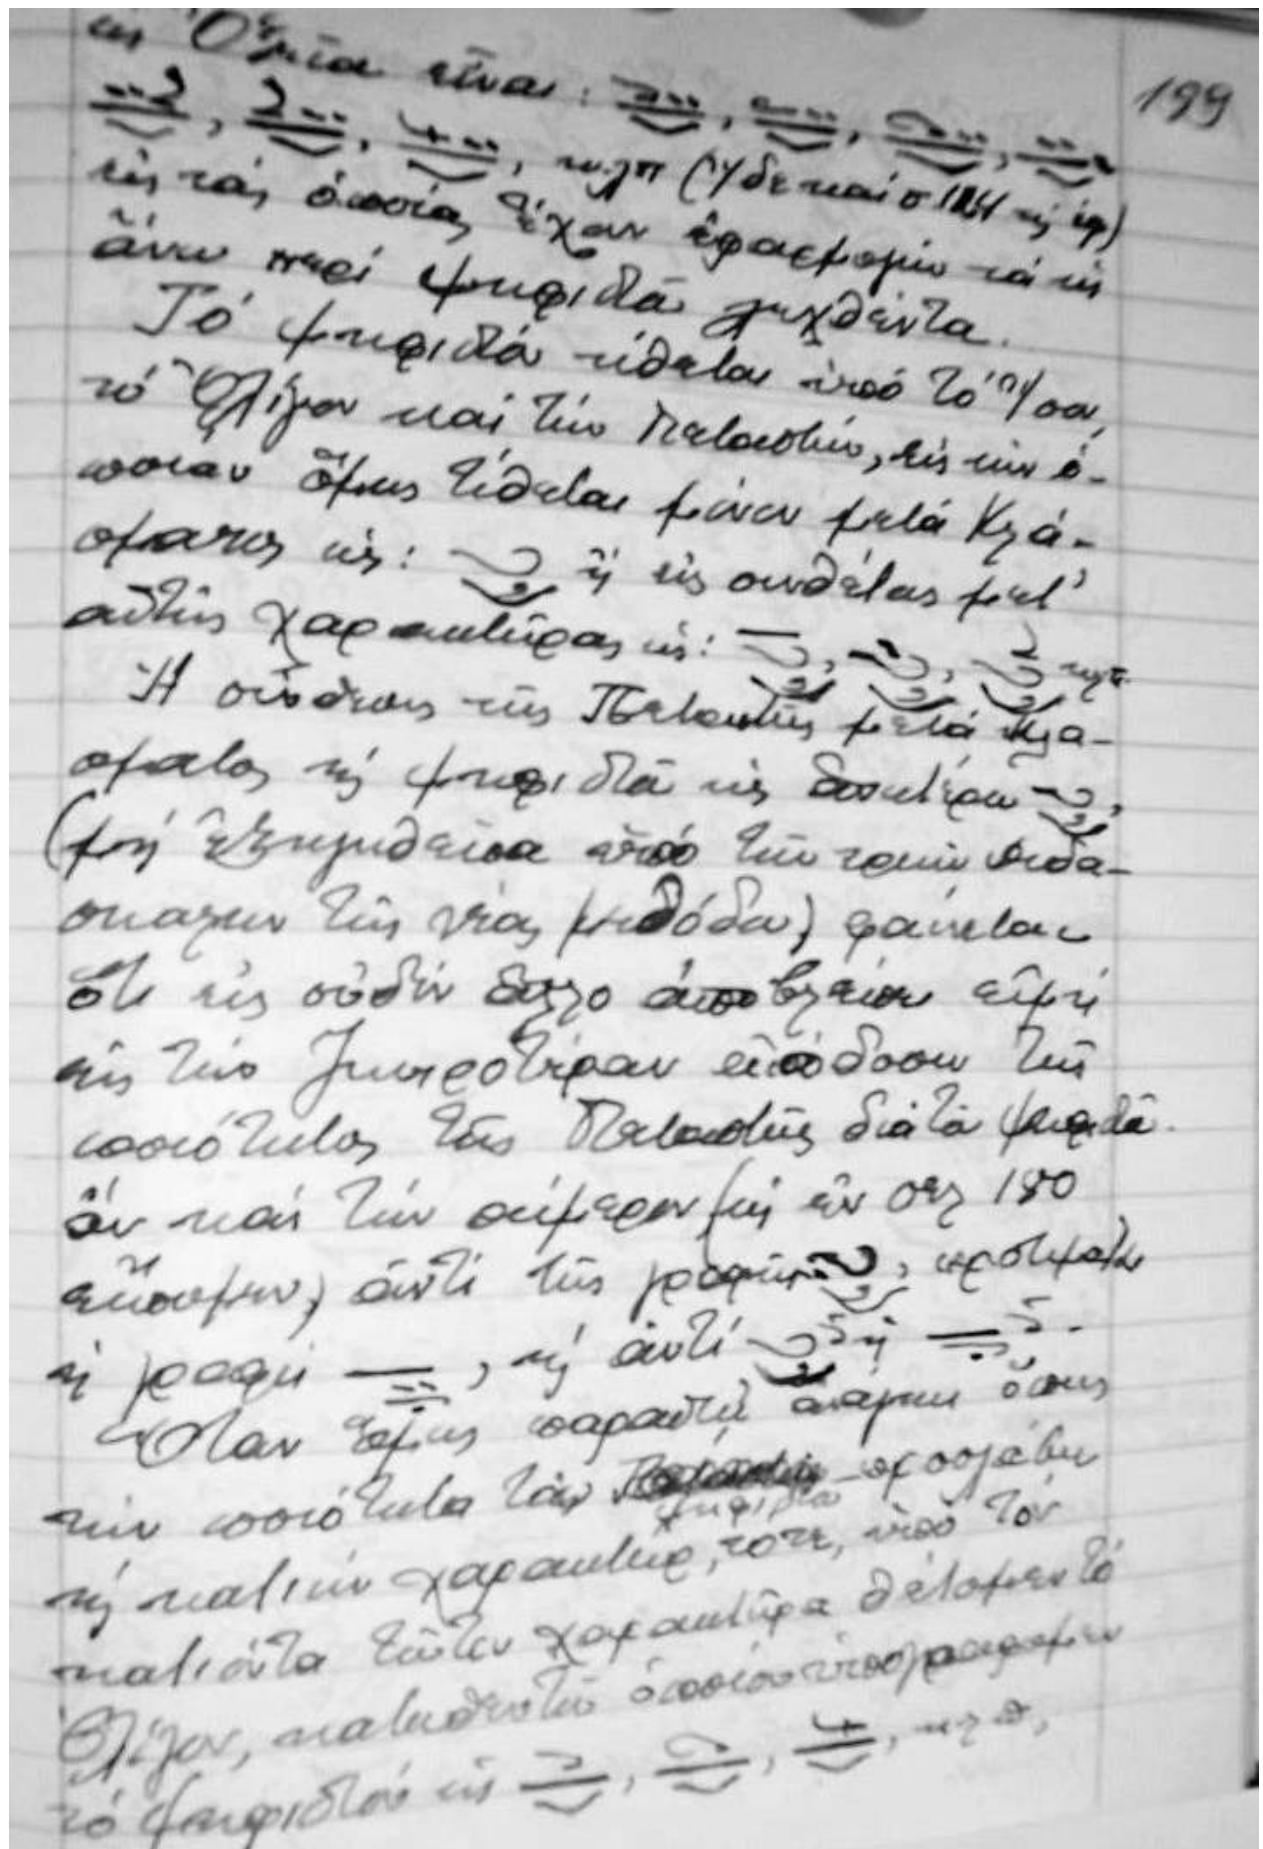 199
ὡς Ὅμοια εἶναι:
κλπ
εἰς τὰς ὁποίας ἔχουν ἐφαρμογὴν τὰ ὡς
ἄνω περὶ ψηφιστοῦ λεχθέντα.
Τό ψηφιστόν τίθεται ὑπό τό Ἴσον,
τό Ὀλίγον καί τήν Πεταστήν, εἰς τήν ὁ-
ποίαν ὅμως τίθεται μόνον μετά Κλά-
σματος ὡς: ἤ εἰς συνθέτους μετ'
αὐτῆς χαρακτῆρας ὡς: κλπ.
Ἡ σύνθεσις τῆς Πεταστῆς μετά Κλά-
σματος ἤ ψηφιστοῦ ὡς
(μή ἐξηγηθεῖσα ὑπό τῶν τριῶν διδα-
σκάλων τῆς νέας μεθόδου) φαίνεται
ὅτι εἰς οὐδέν ἄλλο ἀποβλέπει εἰμή
εἰς τήν ζωηροτέραν ἀπόδοσιν τῆς
ποιότητος τῆς Πεταστῆς διά τοῦ ψηφιστοῦ.
ἄν καί τήν σήμερον (ὡς ἐν σελ 180
εἴπομεν) ἀντί τῆς γραφῆς, προτιμᾶται
ἡ γραφή , ἤ ἀντί ἡ
Ὅταν ὅμως παραστῇ ἀνάγκη ὅπως
τήν ποιότητα τοῦ ψηφιστοῦ προσλάβῃ
ἤ κατιών χαρακτήρ, τότε, ὑπό τόν
κατιόντα τοῦτον χαρακτῆρα θέτομεν τό
Ὀλίγον, κάτωθεν τοῦ ὁποίου ὑπογράφομεν
τό ψηφιστόν ὡς , κλπ,